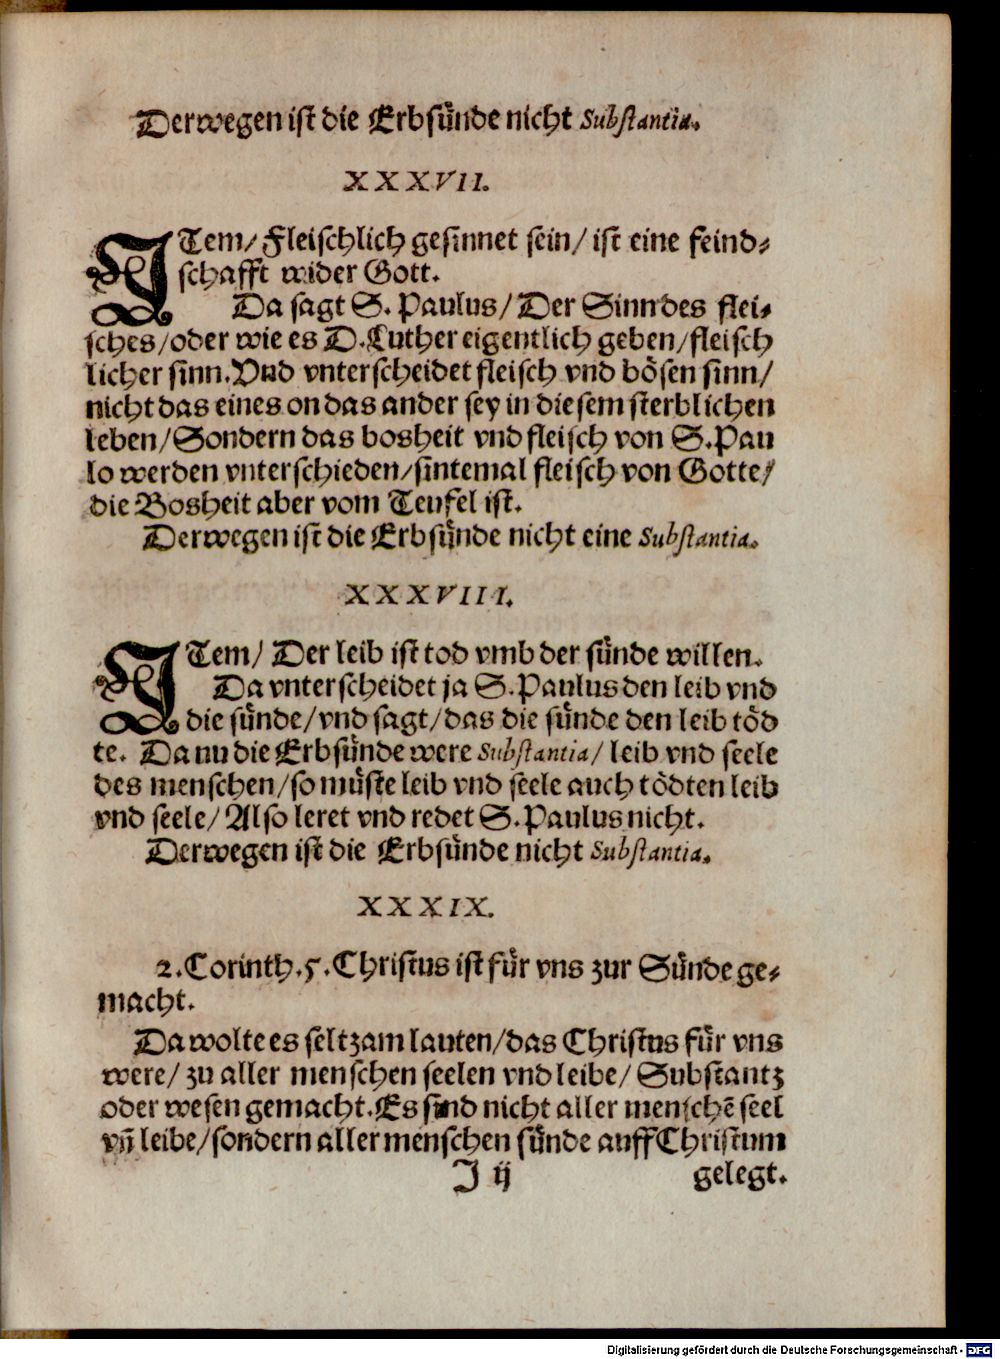 Derwegen ist die Erbsünde nicht Substantia.
XXXVII.
ITem/ Fleischlich gesinnet sein/ ist eine feind⸗
schafft wider Gott.
Da sagt S. Paulus/ Der Sinn des flei⸗
sches/ oder wie es D. Luther eigentlich geben/ fleisch
licher sinn. Vnd vnterscheidet fleisch vnd bösen sinn/
nicht das eines on das ander sey in diesem sterblichen
leben/ Sondern das bosheit vnd fleisch von S. Pau
lo werden vnterschieden/ sintemal fleisch von Gotte/
die Bosheit aber vom Teufel ist.
Derwegen ist die Erbsünde nicht eine Substantia.
XXXVIII.
ITem/ Der leib ist tod vmb der sünde willen.
Da vnterscheidet ja S. Paulus den leib vnd
die sünde/ vnd sagt/ das die sünde den leib töd
te. Da nu die Erbsünde were Substantia/ leib vnd seele
des menschen/ so müste leib vnd seele auch tödten leib
vnd seele/ Also leret vnd redet S. Paulus nicht.
Derwegen ist die Erbsünde nicht Substantia.
XXXIX.
2. Corinth. 5. Christus ist für vns zur Sünde ge⸗
macht.
Da wolte es seltzam lauten/ das Christus für vns
were/ zu aller menschen seelen vnd leibe/ Substantz
oder wesen gemacht. Es sind nicht aller menschē seel
vn̄ leibe/ sondern aller menschen sünde auff Christum
J ij gelegt.
Digitalisierung gefördert durch die Deutsche Forschungsgemeinschaft - DFG